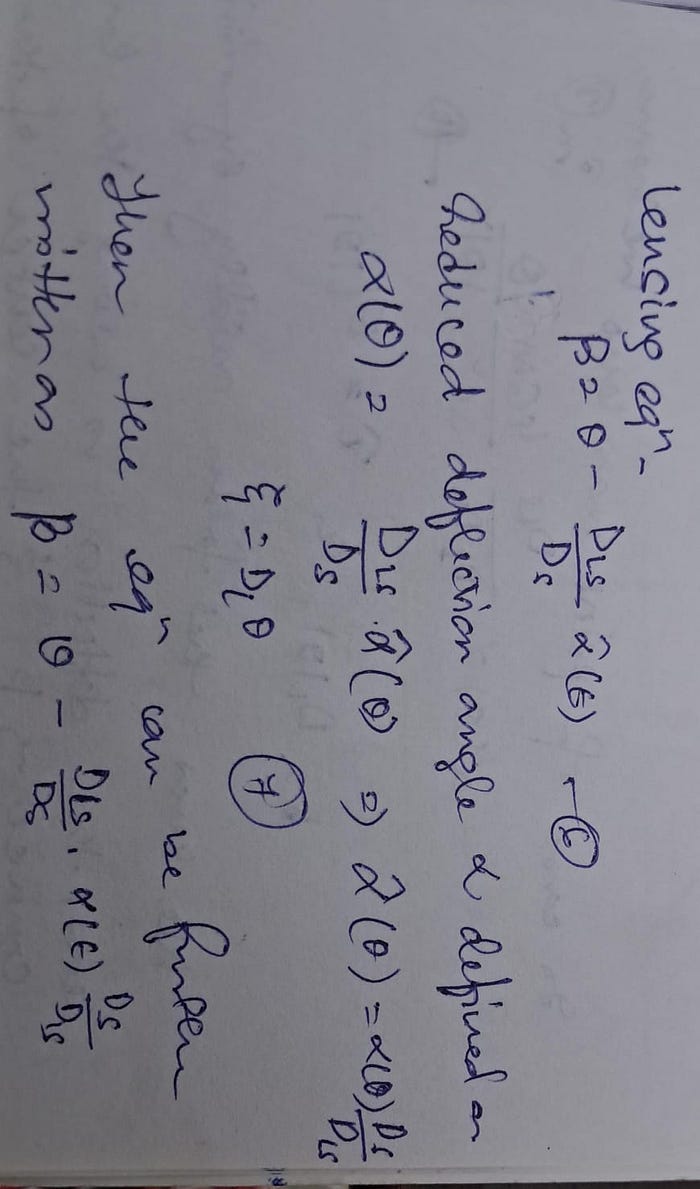 lensing eqⁿ -
β = θ - D_LS/D_S α̂(ξ) - ⑥
Reduced deflection angle α defined as
α(θ) = D_LS/D_S · α̂(θ) ⇒ α̂(θ) = α(θ) D_S/D_LS
ξ = D_L θ ⑦
Then the eqⁿ can be further
written as β = θ - D_LS/D_S · α(ξ) D_S/D_LS